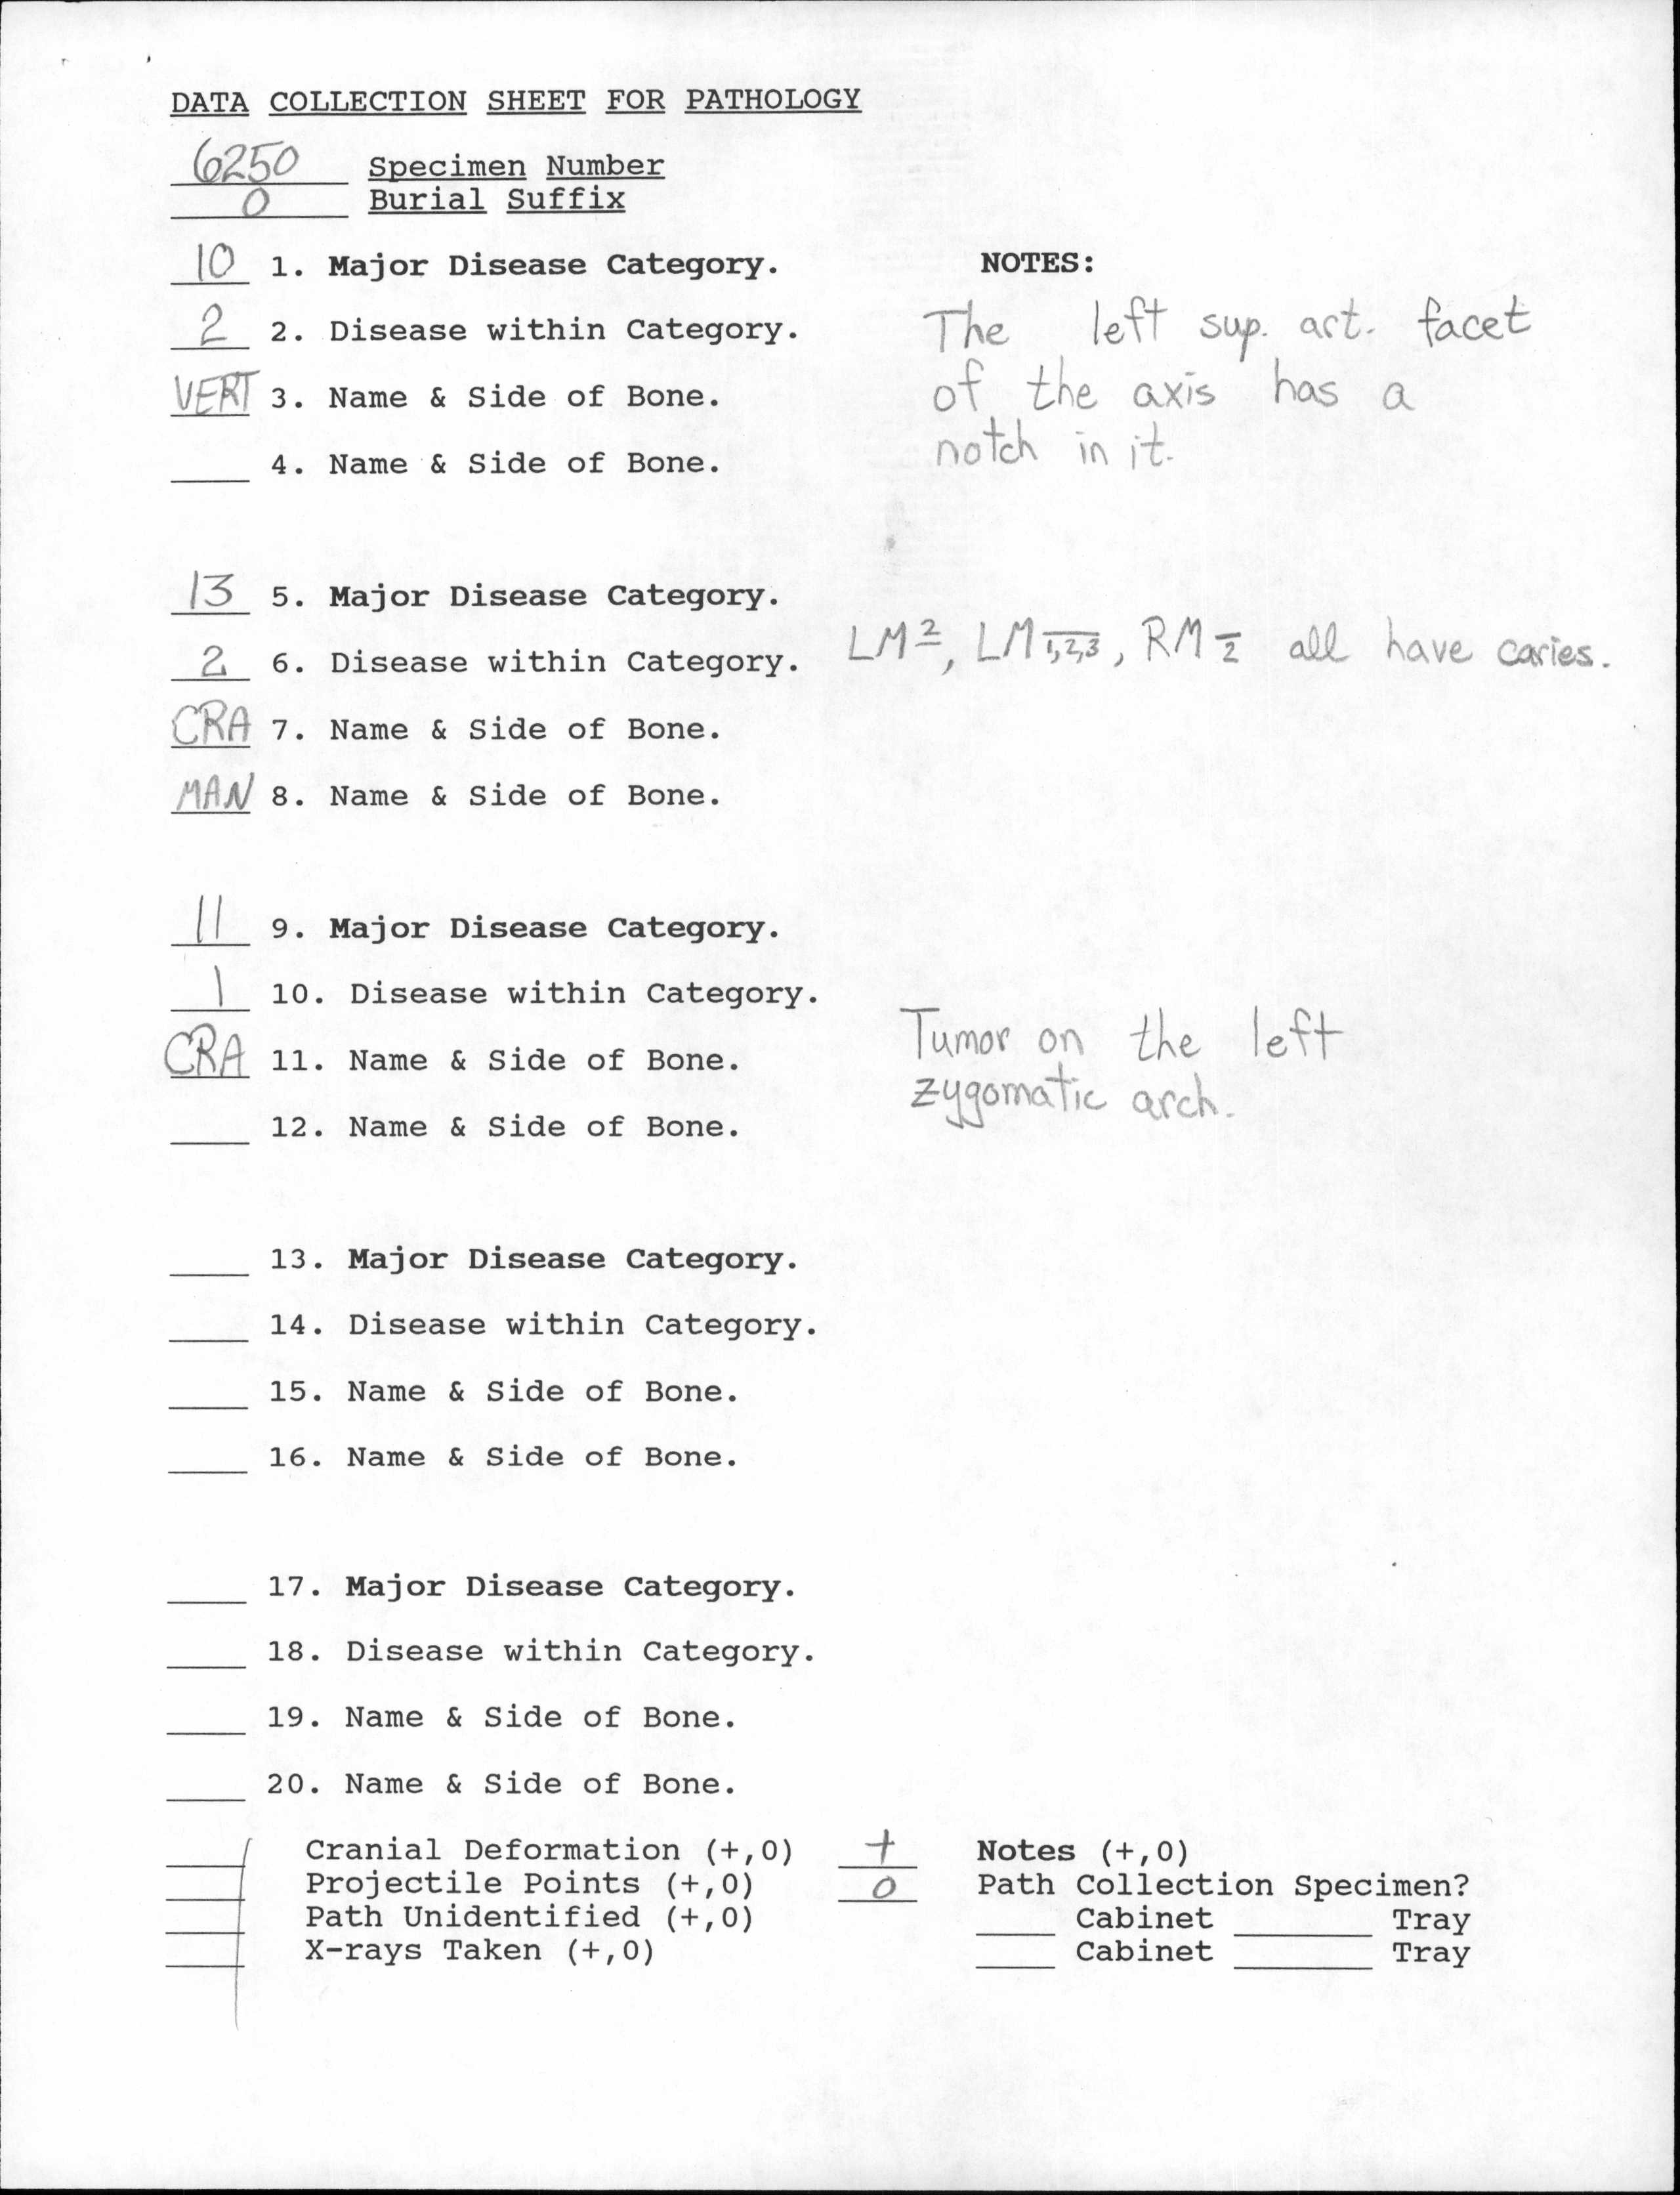 DATA COLLECTION SHEET FOR PATHOLOGY
6250 Specimen Number
0 Burial Suffix
10 1. Major Disease Category. NOTES:
2 2. Disease within Category. The left sup. art. facet
VERT 3. Name & Side of Bone. of the axis has a
4. Name & Side of Bone. notch in it.
13 5. Major Disease Category.
2 6. Disease within Category. LM2, LM1,2,3, RM2 all have caries.
CRA 7. Name & Side of Bone.
MAN 8. Name & Side of Bone.
11 9. Major Disease Category.
1 10. Disease within Category.
CRA 11. Name & Side of Bone. Tumor on the left
zygomatic arch.
12. Name & Side of Bone.
13. Major Disease Category.
14. Disease within Category.
15. Name & Side of Bone.
16. Name & Side of Bone.
17. Major Disease Category.
18. Disease within Category.
19. Name & Side of Bone.
20. Name & Side of Bone.
Cranial Deformation (+,0) + Notes (+,0)
Projectile Points (+,0) 0 Path Collection Specimen?
Path Unidentified (+,0) Cabinet Tray
X-rays Taken (+,0) Cabinet Tray